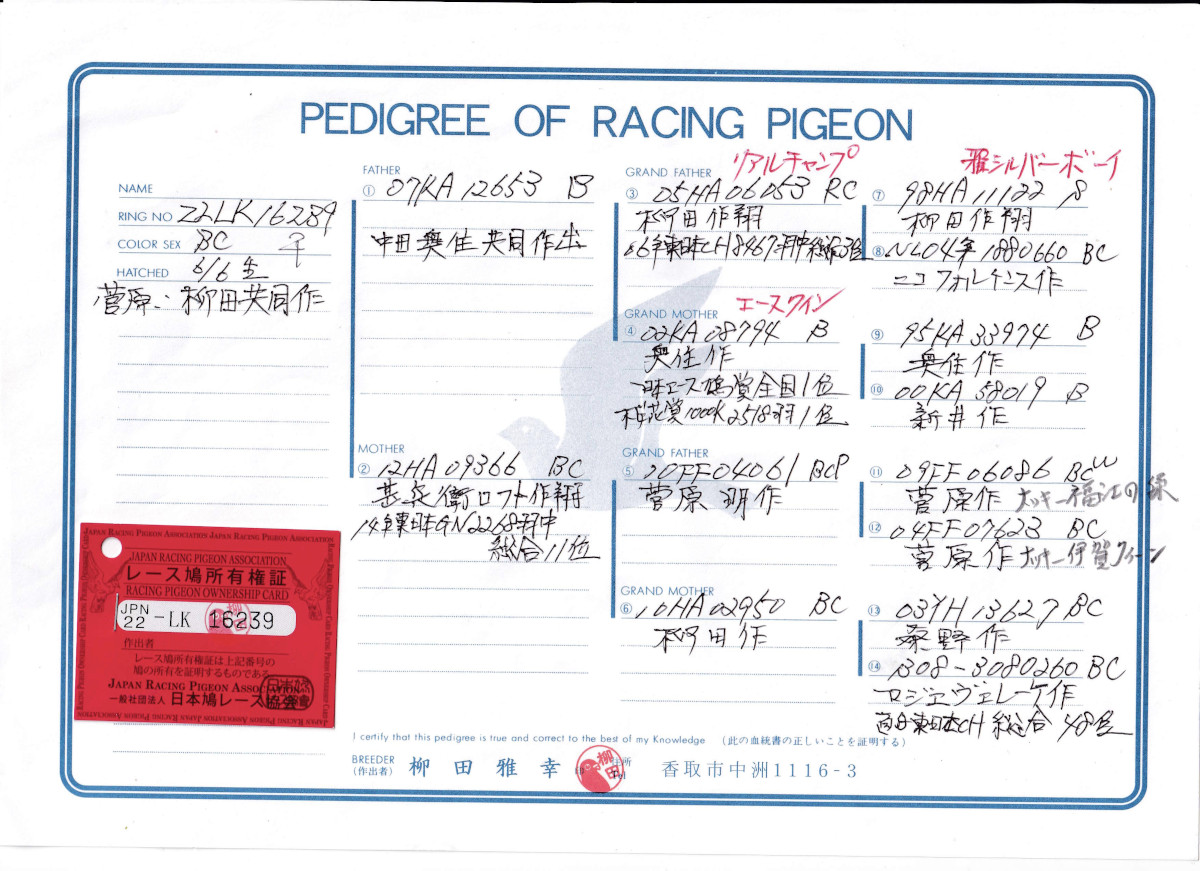 PEDIGREE OF RACING PIGEON
NAME
RING NO 22LK16239
COLOR SEX BC ♀
HATCHED 6/6生
菅原・柳田共同作
FATHER
① 07KA 12653 B
中田奥住共同作出
MOTHER
② 12HA 09366 BC
甚兵衛ロフト作翔
14年東日本GN2268羽中
総合11位
リアルチャンプ
GRAND FATHER
③ 05HA 06053 RC
柳田作翔
06年東日本CH8467羽中総合3位
エースワイン
GRAND MOTHER
④ 02KA 08794 B
奥住作
日本エース鳩賞全国1位
桜花賞1000K2518羽1位
GRAND FATHER
⑤ 10FF04061 BCP
菅原明作
GRAND MOTHER
⑥ 10HA 02950 BC
柳田作
雅シルバーボーイ
⑦ 98HA 11122 S
柳田作翔
⑧ NL04年1880660 BC
ニコフォルテンス作
⑨ 95KA 33974 B
奥住作
⑩ 00KA 58019 B
新井作
⑪ 09FF 06086 BCW
菅原作 ネッキー福江の孫
⑫ 04FF07623 BC
菅原作 ネッキー伊賀クィーン
⑬ 03YH 13627 BC
桑野作
⑭ B08-3080260 BC
ロジェヴェレーケ作
東日本CH 総合48位
JAPAN RACING PIGEON ASSOCIATION JAPAN RACING PIGEON ASSOCIATION
JAPAN RACING PIGEON ASSOCIATION
レース鳩所有権証
RACING PIGEON OWNERSHIP CARD
JPN
22 -LK 16239
作出者
柳田
レース鳩所有権証は上記番号の
鳩の所有を証明するものである
JAPAN RACING PIGEON ASSOCIATION
一般社団法人 日本鳩レース協会
I certify that this pedigree is true and correct to the best of my Knowledge (此の血統書の正しいことを証明する)
BREEDER
(作出者) 柳田雅幸 住所 香取市中洲1116-3
Tel
柳田